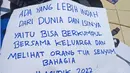 ADA YANG LEBIH INDAH
DARI DUNIA DAN ISINYA
YAITU BISA BERKUMPUL
BERSAMA KELUARGA DAN
MELIHAT ORANG TUA SENYUM
BAHAGIA
2022